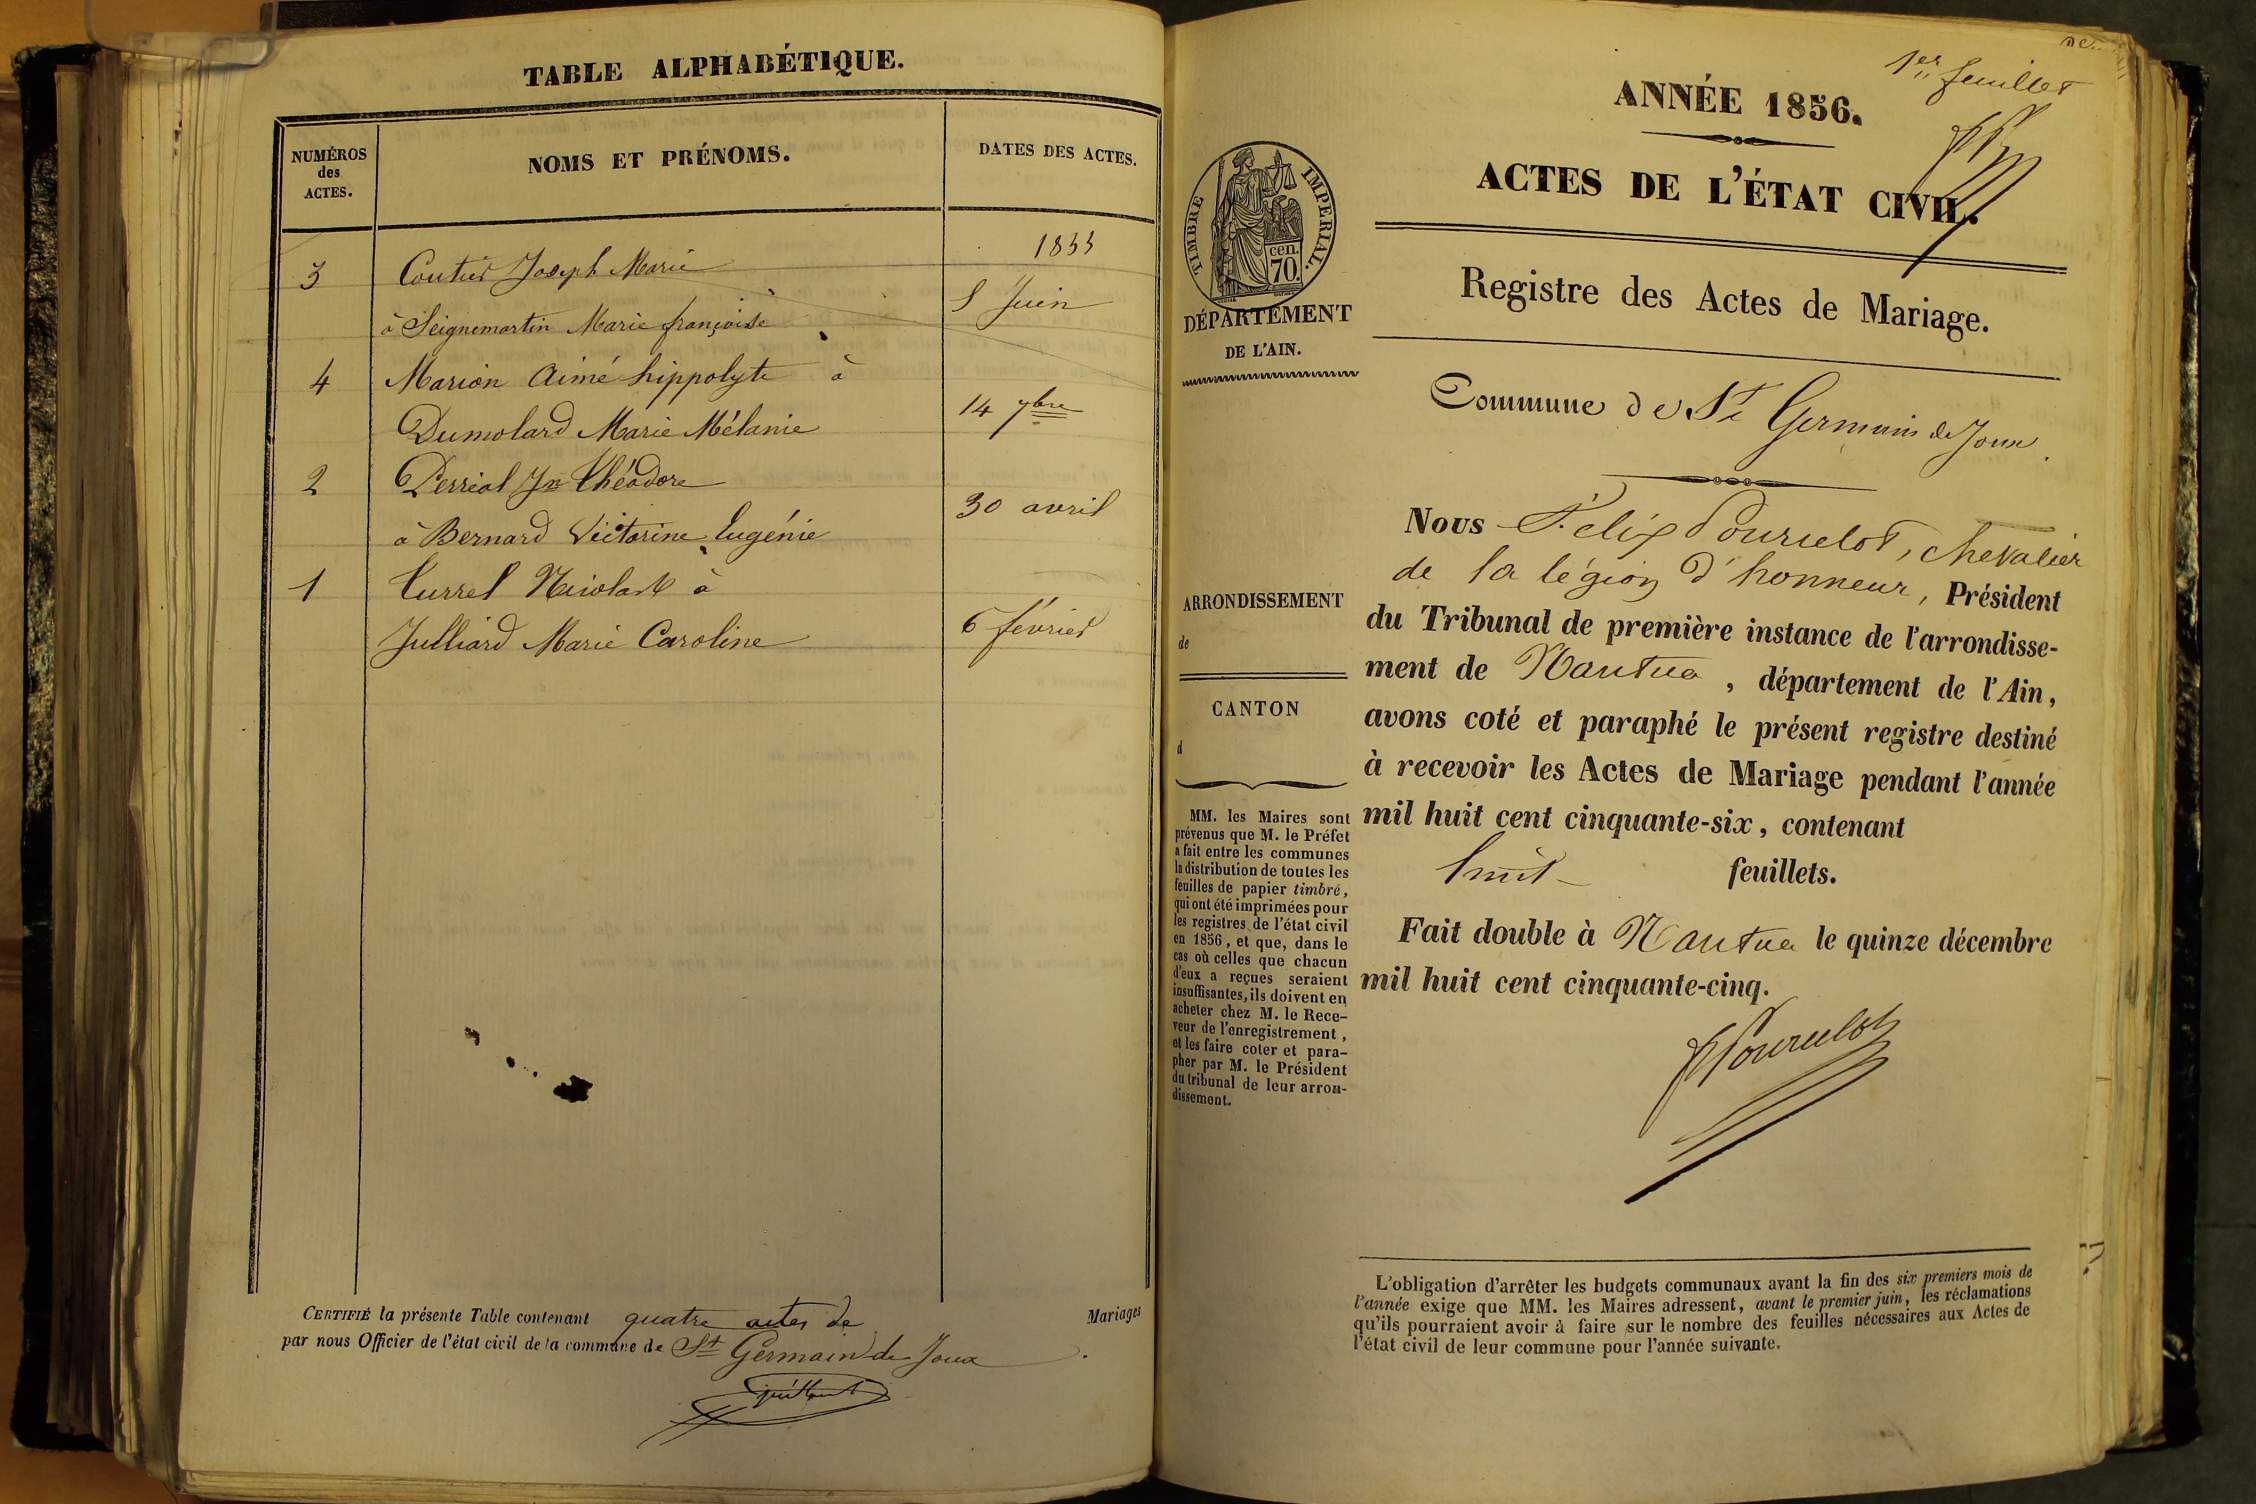 TABLE ALPHABÉTIQUE.
NUMÉROS
des
ACTES.
NOMS ET PRÉNOMS.
DATES DES ACTES.
1855
3 Coutier Joseph Marie
à Seignemartin Marie françoise
8 Juin
4 Marion Aimé hippolyte à
Dumolard Marie Mélanie
14 7bre
2 Perréal Jn Théodore
à Bernard Victorine Eugénie
30 avril
1 Turrel Nicolas à
Julliard Marie Caroline
6 février
CERTIFIÉ la présente Table contenant quatre actes de Mariages
par nous Officier de l'état civil de la commune de St Germain de Joux.
1er feuillet
ANNÉE 1856.
ACTES DE L'ÉTAT CIVIL.
Registre des Actes de Mariage.
TIMBRE IMPÉRIAL.
cen.
70.
DÉPARTEMENT
DE L'AIN.
ARRONDISSEMENT
de
CANTON
d
MM. les Maires sont
prévenus que M. le Préfet
a fait entre les communes
la distribution de toutes les
feuilles de papier timbré,
qui ont été imprimées pour
les registres de l'état civil
en 1856, et que, dans le
cas où celles que chacun
d'eux a reçues seraient
insuffisantes, ils doivent en
acheter chez M. le Rece-
veur de l'enregistrement,
et les faire coter et para-
pher par M. le Président
du tribunal de leur arron-
dissement.
Commune de St Germain de Joux.
Nous Félix Pourcelot, chevalier
de la légion d'honneur, Président
du Tribunal de première instance de l'arrondisse-
ment de Nantua, département de l'Ain,
avons coté et paraphé le présent registre destiné
à recevoir les Actes de Mariage pendant l'année
mil huit cent cinquante-six, contenant
huit feuillets.
Fait double à Nantua le quinze décembre
mil huit cent cinquante-cinq.
FPourcelot
L'obligation d'arrêter les budgets communaux avant la fin des six premiers mois de
l'année exige que MM. les Maires adressent, avant le premier juin, les réclamations
qu'ils pourraient avoir à faire sur le nombre des feuilles nécessaires aux Actes de
l'état civil de leur commune pour l'année suivante.